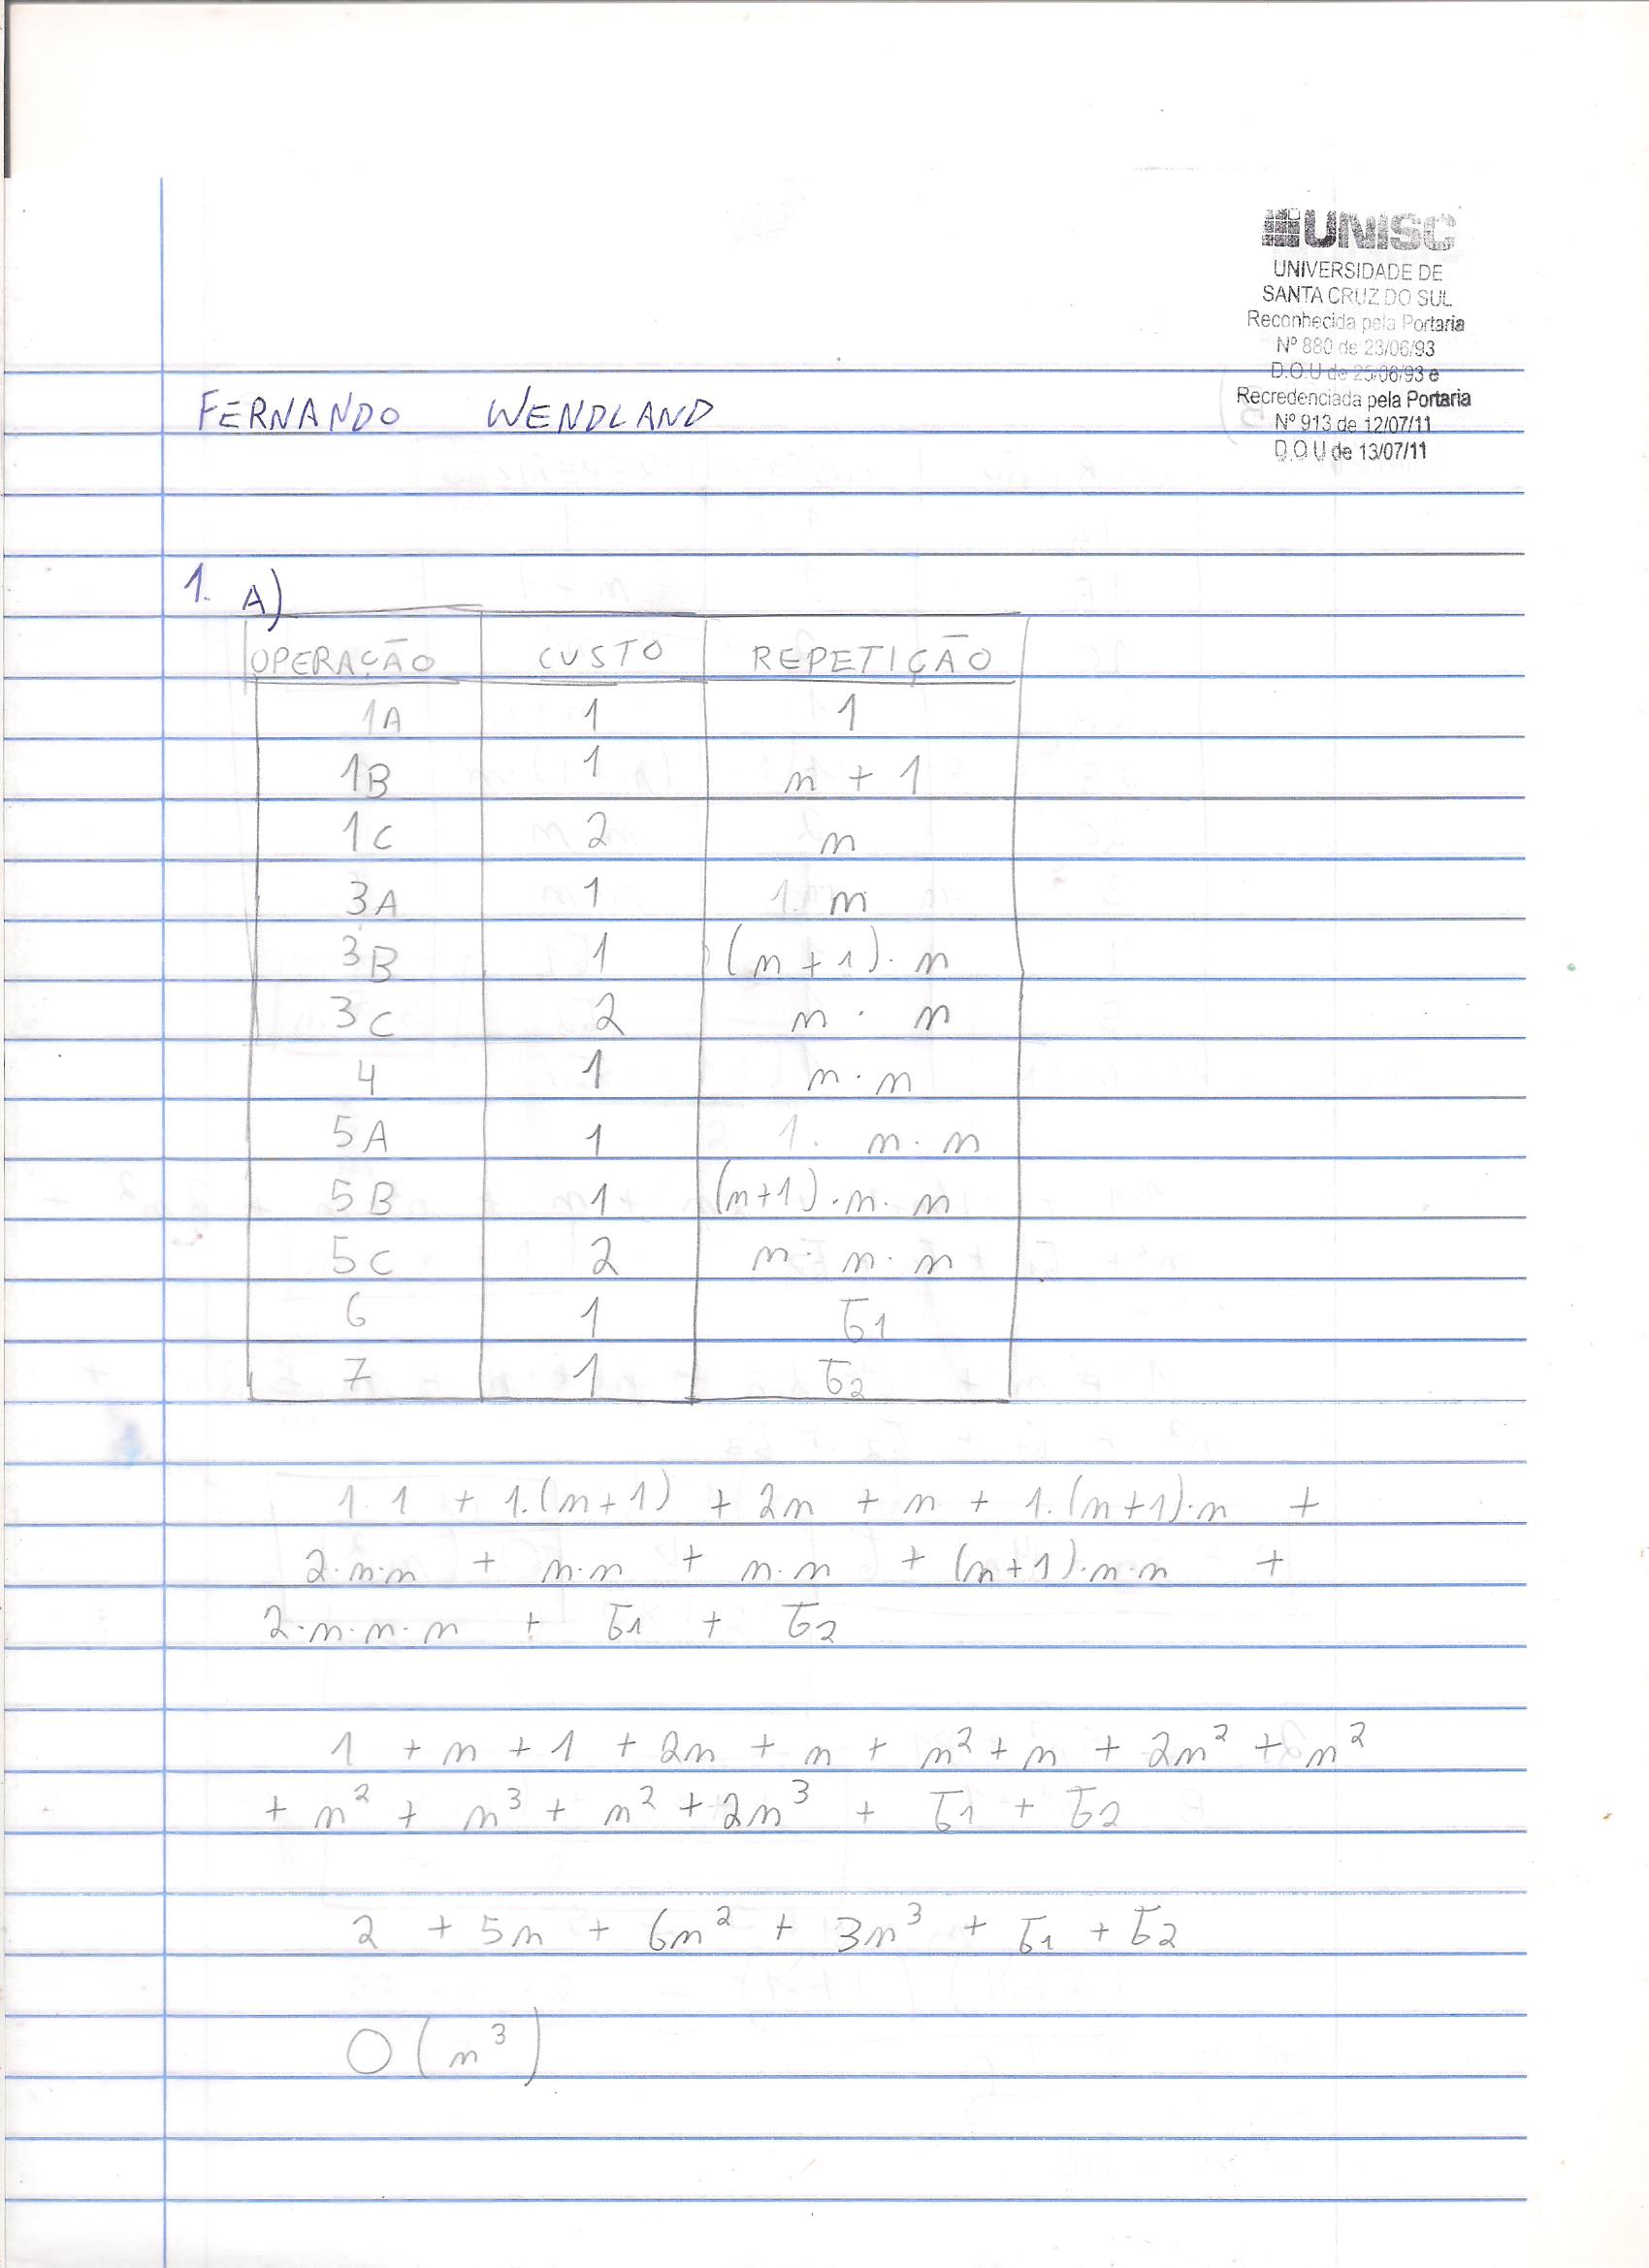 UNISC
UNIVERSIDADE DE
SANTA CRUZ DO SUL
Reconhecida pela Portaria
Nº 880 de 23/06/93
D.O.U de 25/06/93 e
Recredenciada pela Portaria
Nº 913 de 12/07/11
D.O.U de 13/07/11
FERNANDO WENDLAND
1. A)
OPERAÇÃO CUSTO REPETIÇÃO
1A 1 1
1B 1 n + 1
1C 2 n
3A 1 1. n
3B 1 (n + 1) · n
3C 2 n · n
4 1 n · n
5A 1 1. n · n
5B 1 (n+1) · n · n
5C 2 n · n · n
6 1 δ1
7 1 δ2
1.1 + 1.(n+1) + 2n + n + 1.(n+1)·n +
2·n·n + n·n + n·n + (n+1)·n·n +
2·n·n·n + δ1 + δ2
1 + n + 1 + 2n + n + n² + n + 2n² + n²
+ n² + n³ + n² + 2n³ + δ1 + δ2
2 + 5n + 6n² + 3n³ + δ1 + δ2
O(n³)